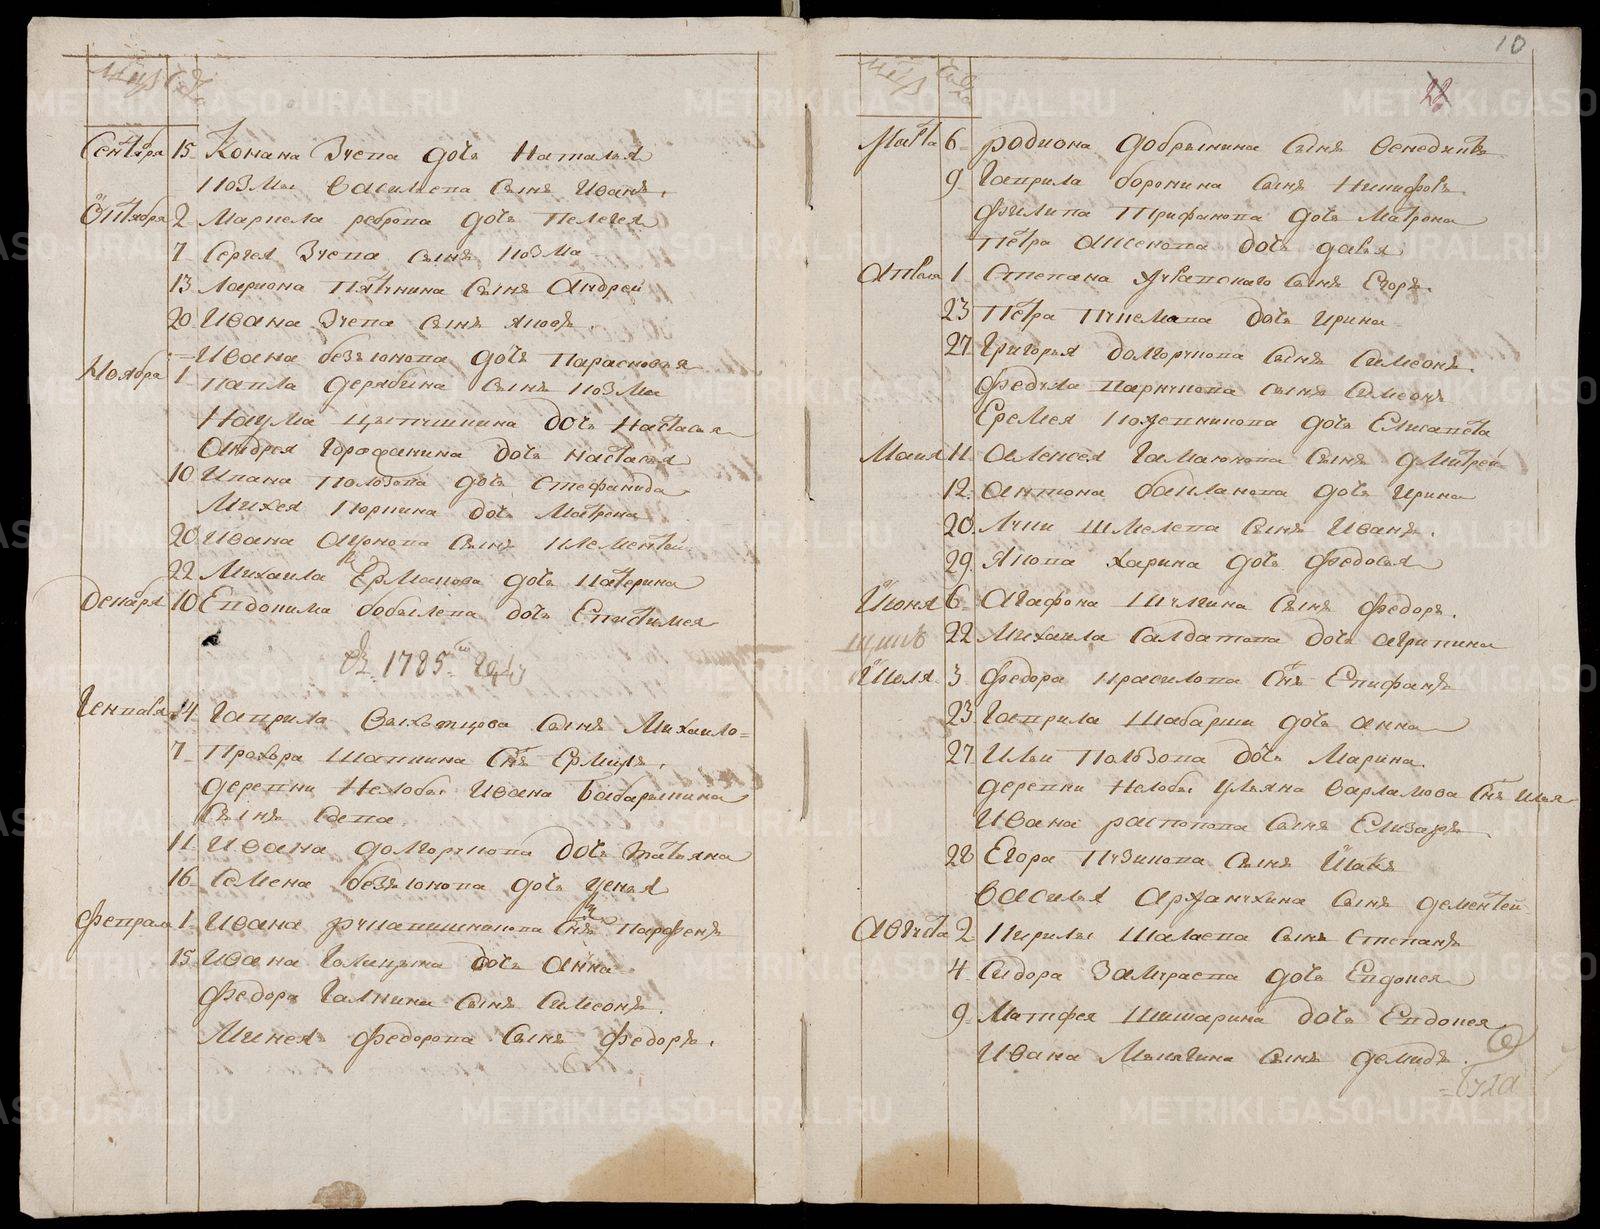 Сентября 15 Конана Зуева дочь Наталья
Козмы Васильева сынъ Иванъ.
Октября 2 Маркела реброва дочь Пелегея
7 Сергея Зуева сынъ Козма
13 Лариона Пяткнина сынъ Андрей
20 Ивана Зуева сынъ Яковъ.
Ивана безъюкова дочь Парасковья
Ноября 1 Павла дерябина сынъ Козма
Наума дочь Настасья
Андрея дочь Настасья
10 Ивана Полозова дочь Стефанида
Михея Коркина дочь Матрона
20 Ивана сынъ Клементей
22 Михаила Ермакова дочь Катерина
Декабря 10 Евдокима бобылева дочь Епистимея
Въ 1785м Году
Генваря 4 Гаврила сынъ Михаило
7 Прохора Шапкина снъ Ермилъ.
деревни Нелобы Ивана Бабарыкина
сынъ Савва
11 Ивана долгорукова дочь татьяна
16 Семена безъюкова дочь
Февраля 1 Ивана рукавишникова снъ парфенъ
15 Ивана Голицына дочь Анна
Федора Галкина сынъ Симеонъ.
Минея Федорова сынъ Федоръ.
10
22
Марта 6 родиона добрынина сынъ Венедиктъ
9 Гаврила воронина сынъ Никифоръ
Филипа Трифанова дочь Матрона
Петра дочь дарья
Апреля 1 Степана сынъ Егоръ.
23 Петра дочь Ирина
27 Григорья долгорукова сынъ Симеонъ.
Федула сынъ Симеонъ
Еремея Кожевникова дочь Елисавета
Маия 11 Алексея Гамаюнова сынъ дмитрей
12 Антона бакланова дочь Ирина
20 Луки шмелева сынъ Иванъ.
29 Якова Харина дочь Федосья
Июня 6 Агафона Шулгина сынъ Федоръ.
22 Михаила Салдатова дочь Агрипина
Июля 3 Федора Красилова снъ Епифанъ
23 Гаврила Шабарши дочь Анна
27 Ильи Полозова дочь Марина.
деревни Нелобы Ульяна Варламова снъ Илья
Ивана распопова сынъ Елизаръ
28 Егора Пузикова сынъ Исакъ
Василья сынъ дементей
Августа 2 Кирилы Шалаева сынъ Степанъ
4 Сидора дочь Евдокея
9 Матфея Шишарина дочь Евдокея
Ивана Мылгина сынъ демидъ.
METRIKI.GASO-URAL.RU